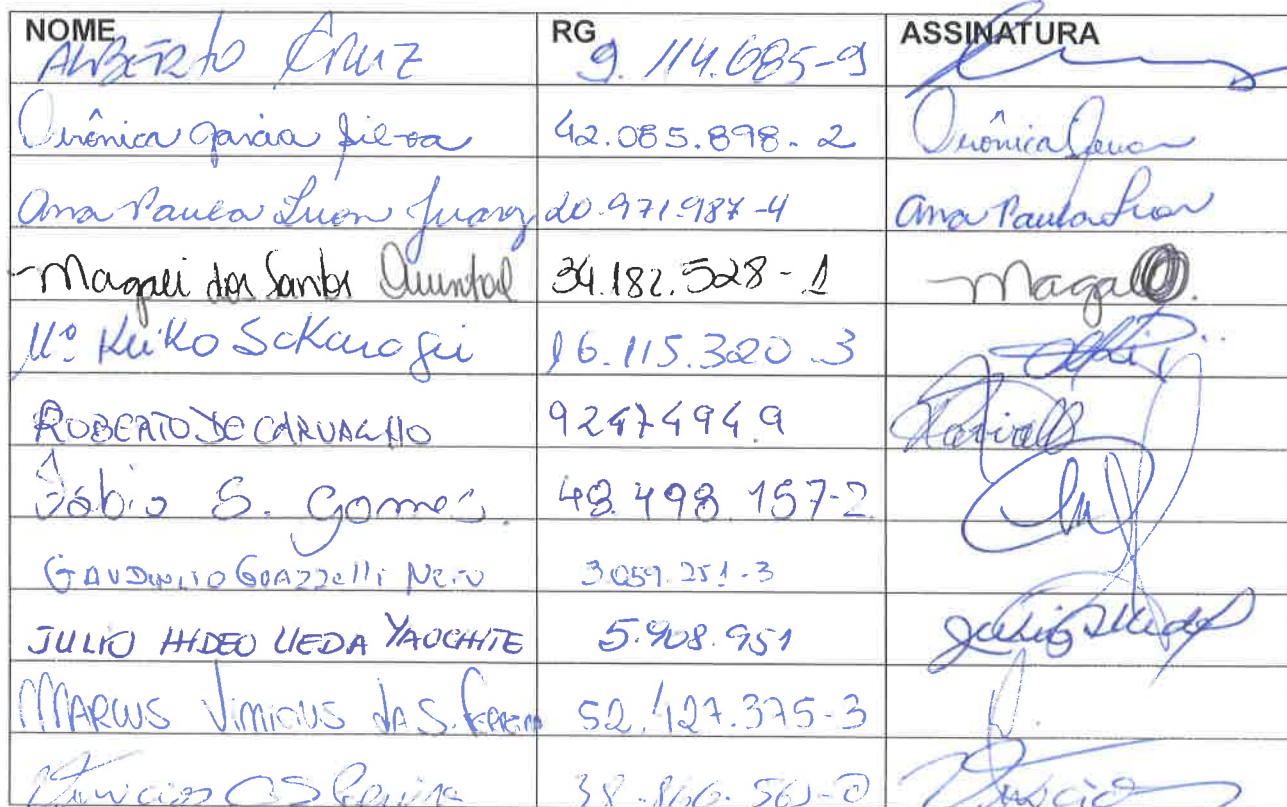 NOME RG ASSINATURA
ALBERTO CRUZ 9.114.685-9
Verônica Garcia Silva 42.085.898-2 Verônica
Ana Paula Luon Juarez 20.971.987-4 Ana Paula Luon
Magali dos Santos Quintal 34.182.528-1 Magali
Mª Keiko Sakuragui 16.115.320.3
ROBERTO DE CARVALHO 92474949
Fábio S. Gomes. 48.498.157-2
GAUDENCIO GUAZZELLI NETO 3.059.251-3
JULIO HIDEO UEDA YAOCHITE 5.908.951
MARCUS VINICIUS DA S. FERREIRA 52.427.375-3
38.866.561-0